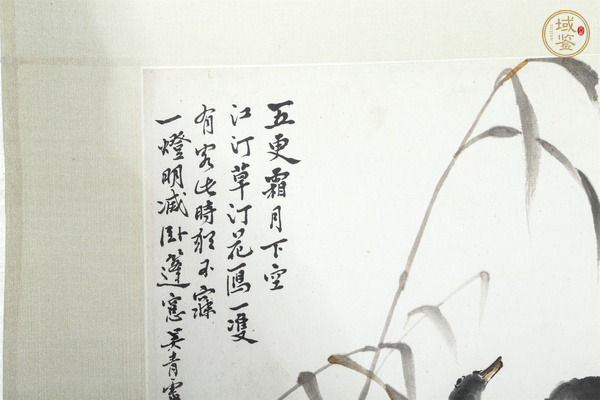 五更霜月下空
江汀草汀花鴈一雙
有客此時猶不寐
一燈明滅臥篷窻吳青霞
域鉴